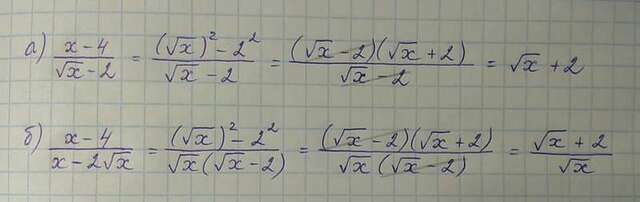 а) (x - 4)/(√x - 2) = ((√x)² - 2²)/(√x - 2) = ((√x - 2)(√x + 2))/(√x - 2) = √x + 2
б) (x - 4)/(x - 2√x) = ((√x)² - 2²)/(√x(√x - 2)) = ((√x - 2)(√x + 2))/(√x(√x - 2)) = (√x + 2)/√x